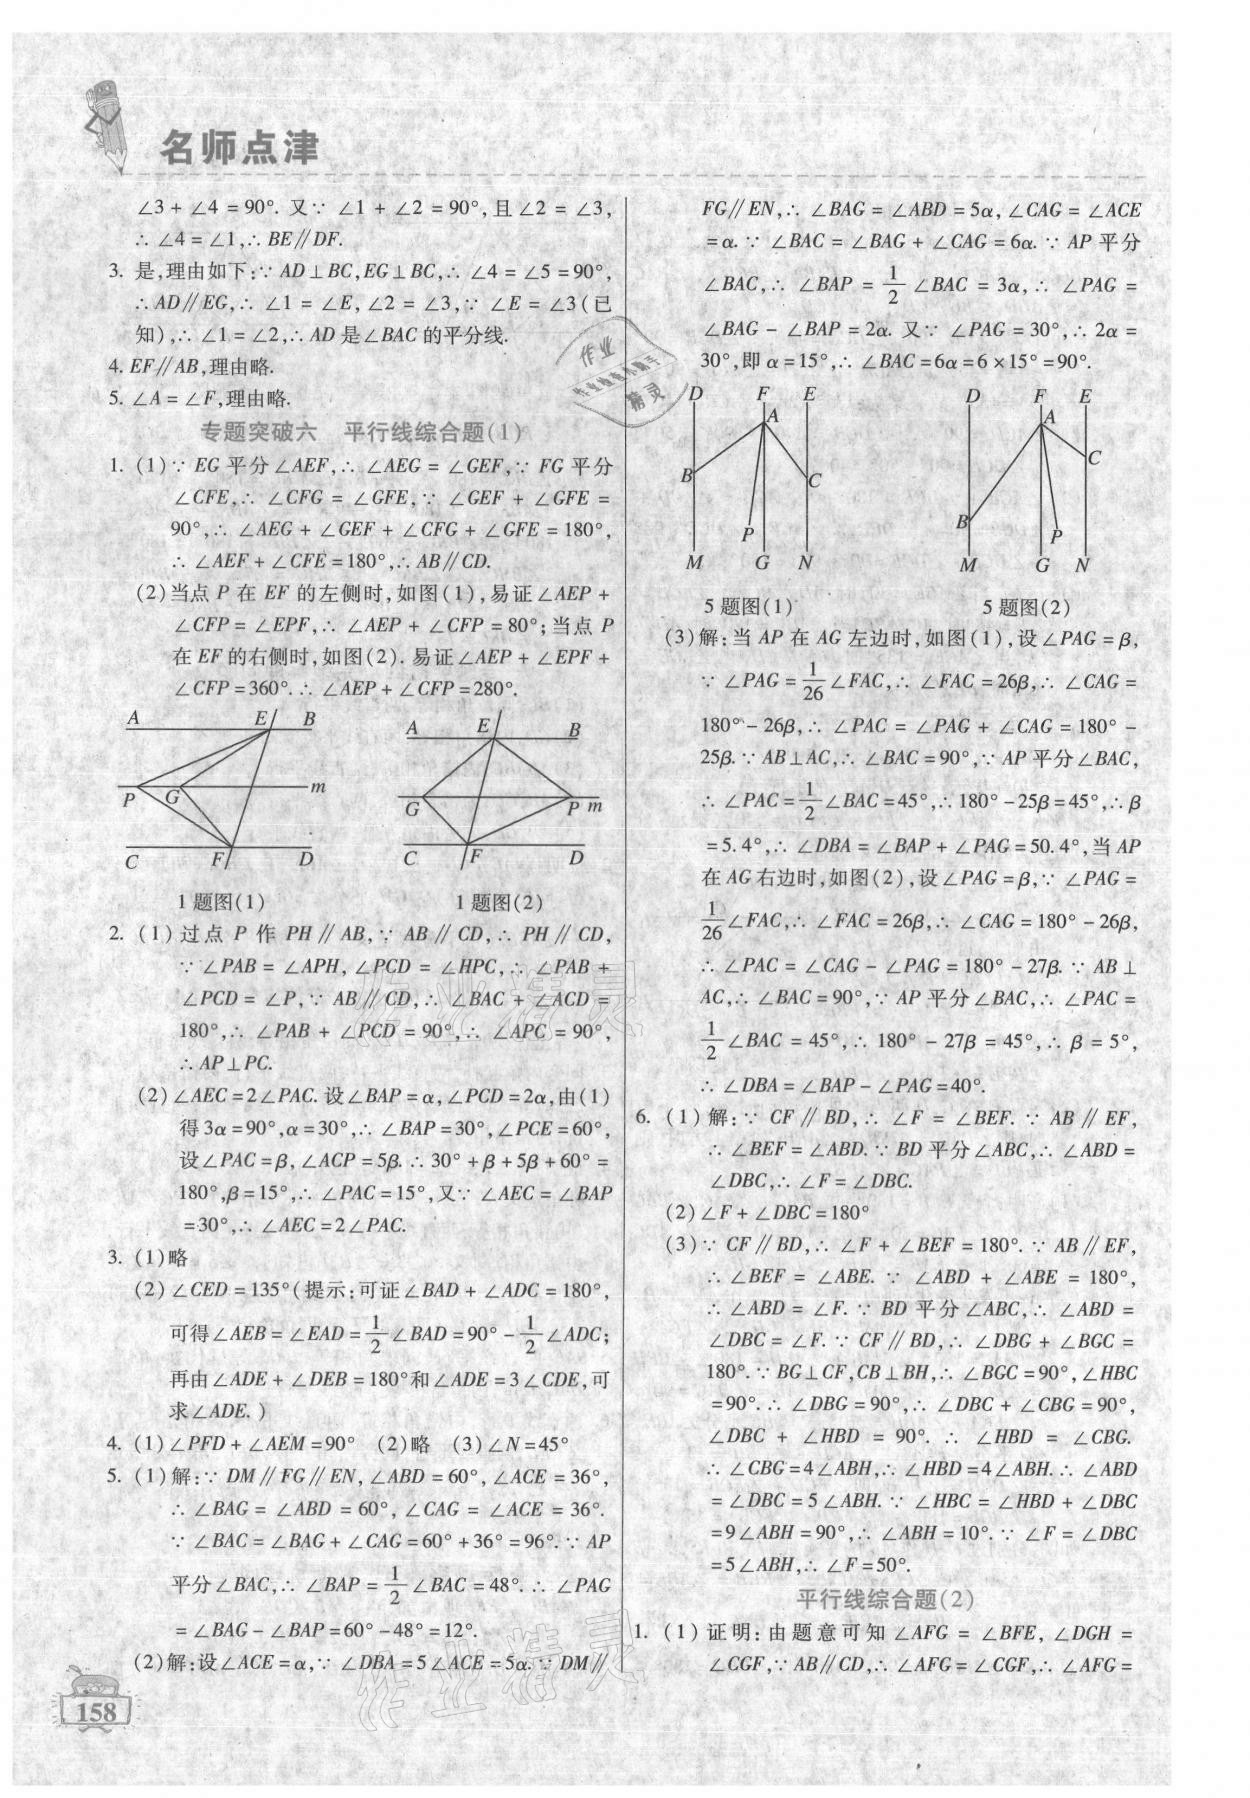 名师点津
∠3+∠4=90°. 又∵ ∠1+∠2=90°,且∠2=∠3,
∴ ∠4=∠1,∴ BE∥DF.
3. 是,理由如下:∵ AD⊥BC,EG⊥BC,∴ ∠4=∠5=90°,
∴AD∥EG,∴ ∠1=∠E,∠2=∠3,∵ ∠E=∠3(已
知),∴ ∠1=∠2,∴ AD 是∠BAC 的平分线.
4. EF∥AB,理由略.
5. ∠A=∠F,理由略.
专题突破六 平行线综合题(1)
1. (1)∵ EG 平分∠AEF,∴ ∠AEG=∠GEF,∵ FG 平分
∠CFE,∴ ∠CFG=∠GFE,∵ ∠GEF+∠GFE=
90°,∴ ∠AEG+∠GEF+∠CFG+∠GFE=180°,
∴ ∠AEF+∠CFE=180°,∴ AB∥CD.
(2)当点 P 在 EF 的左侧时,如图(1),易证∠AEP+
∠CFP=∠EPF,∴ ∠AEP+∠CFP=80°;当点 P
在 EF 的右侧时,如图(2). 易证∠AEP+∠EPF+
∠CFP=360°.∴ ∠AEP+∠CFP=280°.
A E B
P G m
C F D
1 题图(1)
A E B
G P m
C F D
1 题图(2)
2. (1)过点 P 作 PH∥AB,∵ AB∥CD,∴ PH∥CD,
∵ ∠PAB=∠APH,∠PCD=∠HPC,∴ ∠PAB+
∠PCD=∠P,∵ AB∥CD,∴ ∠BAC+∠ACD=
180°,∴ ∠PAB+∠PCD=90°,∴ ∠APC=90°,
∴ AP⊥PC.
(2)∠AEC=2∠PAC. 设∠BAP=α,∠PCD=2α,由(1)
得3α=90°,α=30°,∴ ∠BAP=30°,∠PCE=60°,
设∠PAC=β,∠ACP=5β.∴ 30°+β+5β+60°=
180°,β=15°,∴ ∠PAC=15°,又∵ ∠AEC=∠BAP
=30°,∴ ∠AEC=2∠PAC.
3. (1)略
(2)∠CED=135°(提示:可证∠BAD+∠ADC=180°,
可得∠AEB=∠EAD=1/2∠BAD=90°-1/2∠ADC;
再由∠ADE+∠DEB=180°和∠ADE=3∠CDE,可
求∠ADE.)
4. (1)∠PFD+∠AEM=90° (2)略 (3)∠N=45°
5. (1)解:∵ DM∥FG∥EN,∠ABD=60°,∠ACE=36°,
∴ ∠BAG=∠ABD=60°,∠CAG=∠ACE=36°.
∵ ∠BAC=∠BAG+∠CAG=60°+36°=96°.∵ AP
平分∠BAC,∴ ∠BAP=1/2∠BAC=48°.∴ ∠PAG
=∠BAG-∠BAP=60°-48°=12°.
(2)解:设∠ACE=α,∵ ∠DBA=5∠ACE=5α.∵ DM∥
158
FG∥EN,∴ ∠BAG=∠ABD=5α,∠CAG=∠ACE
=α.∵ ∠BAC=∠BAG+∠CAG=6α.∵ AP 平分
∠BAC,∴ ∠BAP=1/2∠BAC=3α,∴ ∠PAG=
∠BAG-∠BAP=2α. 又∵ ∠PAG=30°,∴ 2α=
30°,即 α=15°,∴ ∠BAC=6α=6×15°=90°.
D F E
A
B C
P
M G N
5 题图(1)
D F E
A
C
B
P
M G N
5 题图(2)
(3)解:当 AP 在 AG 左边时,如图(1),设∠PAG=β,
∵ ∠PAG=1/26∠FAC,∴ ∠FAC=26β,∴ ∠CAG=
180°-26β,∴ ∠PAC=∠PAG+∠CAG=180°-
25β.∵ AB⊥AC,∴ ∠BAC=90°,∵ AP平分∠BAC,
∴ ∠PAC=1/2∠BAC=45°,∴180°-25β=45°,∴ β
=5.4°,∴ ∠DBA=∠BAP+∠PAG=50.4°,当 AP
在 AG 右边时,如图(2),设∠PAG=β,∵ ∠PAG=
1/26∠FAC,∴ ∠FAC=26β,∴ ∠CAG=180°-26β,
∴ ∠PAC=∠CAG-∠PAG=180°-27β.∵ AB⊥
AC,∴ ∠BAC=90°,∵ AP 平分∠BAC,∴ ∠PAC=
1/2∠BAC=45°,∴ 180°-27β=45°,∴ β=5°,
∴ ∠DBA=∠BAP-∠PAG=40°.
6. (1)解:∵ CF∥BD,∴ ∠F=∠BEF.∵ AB∥EF,
∴ ∠BEF=∠ABD.∵ BD 平分∠ABC,∴ ∠ABD=
∠DBC,∴ ∠F=∠DBC.
(2)∠F+∠DBC=180°
(3)∵ CF∥BD,∴ ∠F+∠BEF=180°.∵ AB∥EF,
∴ ∠BEF=∠ABE.∵ ∠ABD+∠ABE=180°,
∴ ∠ABD=∠F.∵ BD 平分∠ABC,∴ ∠ABD=
∠DBC=∠F.∵ CF∥BD,∴ ∠DBG+∠BGC=
180°.∵ BG⊥CF,CB⊥BH,∴ ∠BGC=90°,∠HBC
=90°.∴ ∠DBG=90°,∴ ∠DBC+∠CBG=90°,
∠DBC+∠HBD=90°.∴ ∠HBD=∠CBG.
∴ ∠CBG=4∠ABH,∴ ∠HBD=4∠ABH.∴ ∠ABD
=∠DBC=5∠ABH.∵ ∠HBC=∠HBD+∠DBC
=9∠ABH=90°,∴ ∠ABH=10°.∵ ∠F=∠DBC
=5∠ABH,∴ ∠F=50°.
平行线综合题(2)
1. (1)证明:由题意可知∠AFG=∠BFE,∠DGH=
∠CGF,∵ AB∥CD,∴ ∠AFG=∠CGF,∴ ∠AFG=
作业
精灵
作业精灵
作业精灵